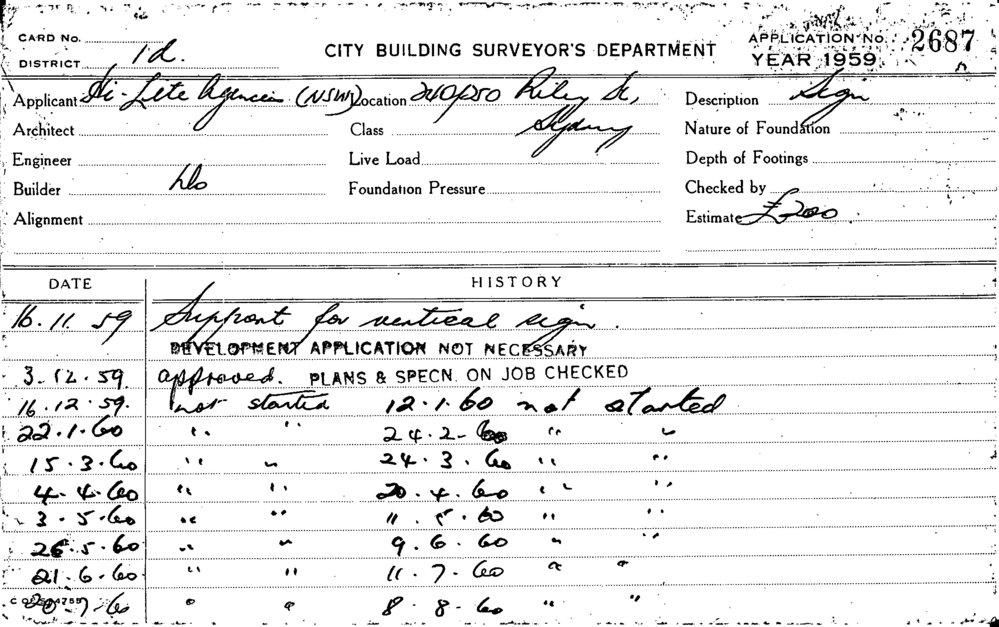 CARD No. CITY BUILDING SURVEYOR'S DEPARTMENT APPLICATION No. 2687
DISTRICT 1d. YEAR 1959
Applicant Hi-Lite Agencies (NSW) Location 240/250 Riley St, Description Sign
Architect Class Sydney Nature of Foundation
Engineer Live Load Depth of Footings
Builder do Foundation Pressure Checked by
Alignment Estimate £200
DATE HISTORY
16.11.59 Support for vertical sign.
DEVELOPMENT APPLICATION NOT NECESSARY
3.12.59. approved. PLANS & SPECN. ON JOB CHECKED
16.12.59. not started 12.1.60 not started
22.1.60 " " 24.2.60 " "
15.3.60 " " 24.3.60 " "
4.4.60 " " 20.4.60 " "
3.5.60 " " 11.5.60 " "
26.5.60 " " 9.6.60 " "
21.6.60 " " 11.7.60 " "
20.7.60 " " 8.8.60 " "